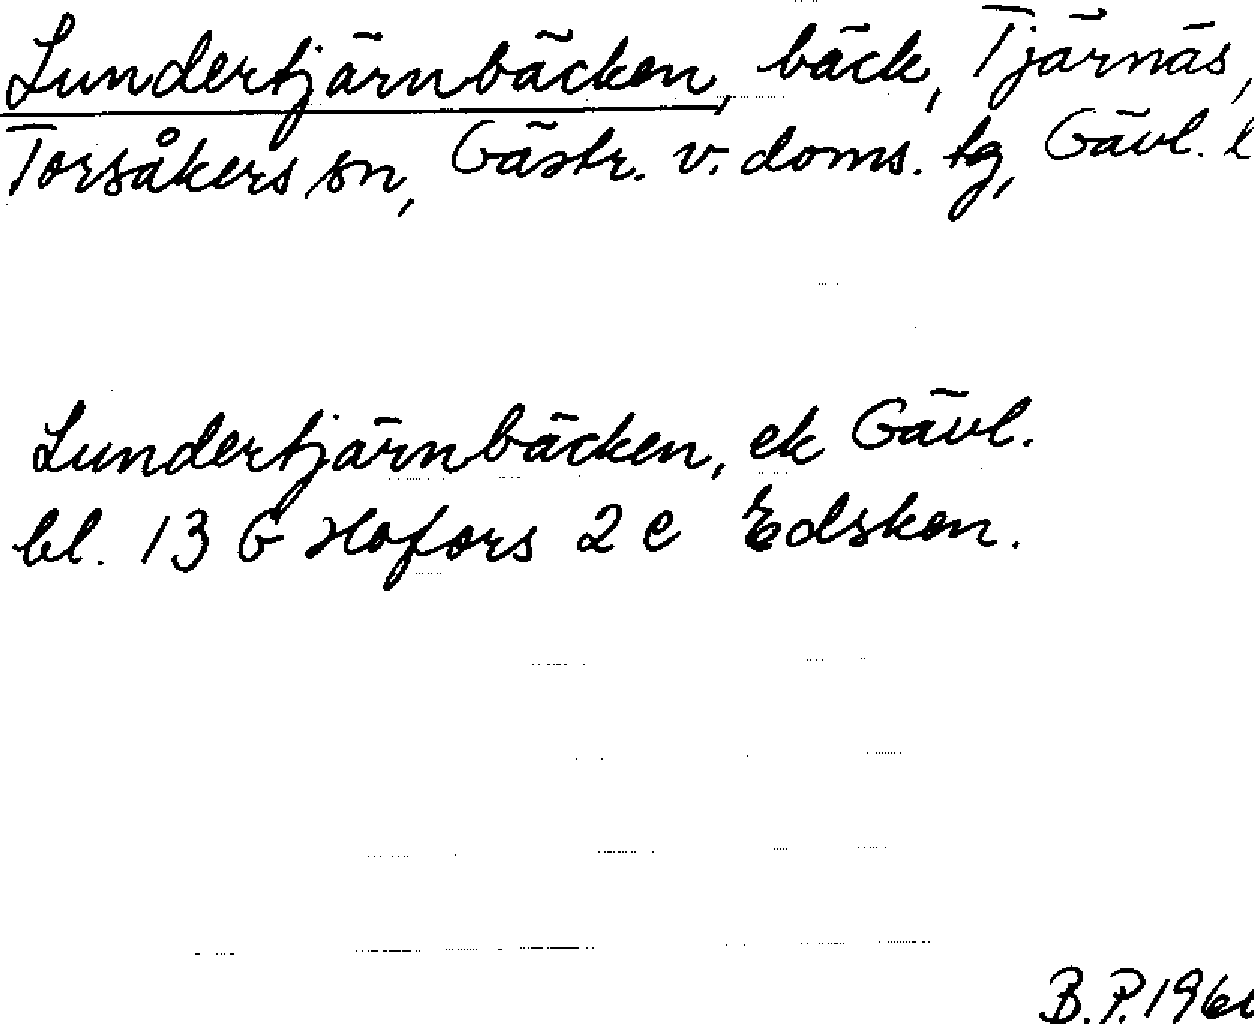 Lundertjärnbäcken, bäck, Tjärnäs,
Torsåkers sn, Gästr. v. doms. tg, Gävl. l
Lundertjärnbäcken, ek Gävl.
bl. 13 G Hofors 2 c Edsken.
B.P.